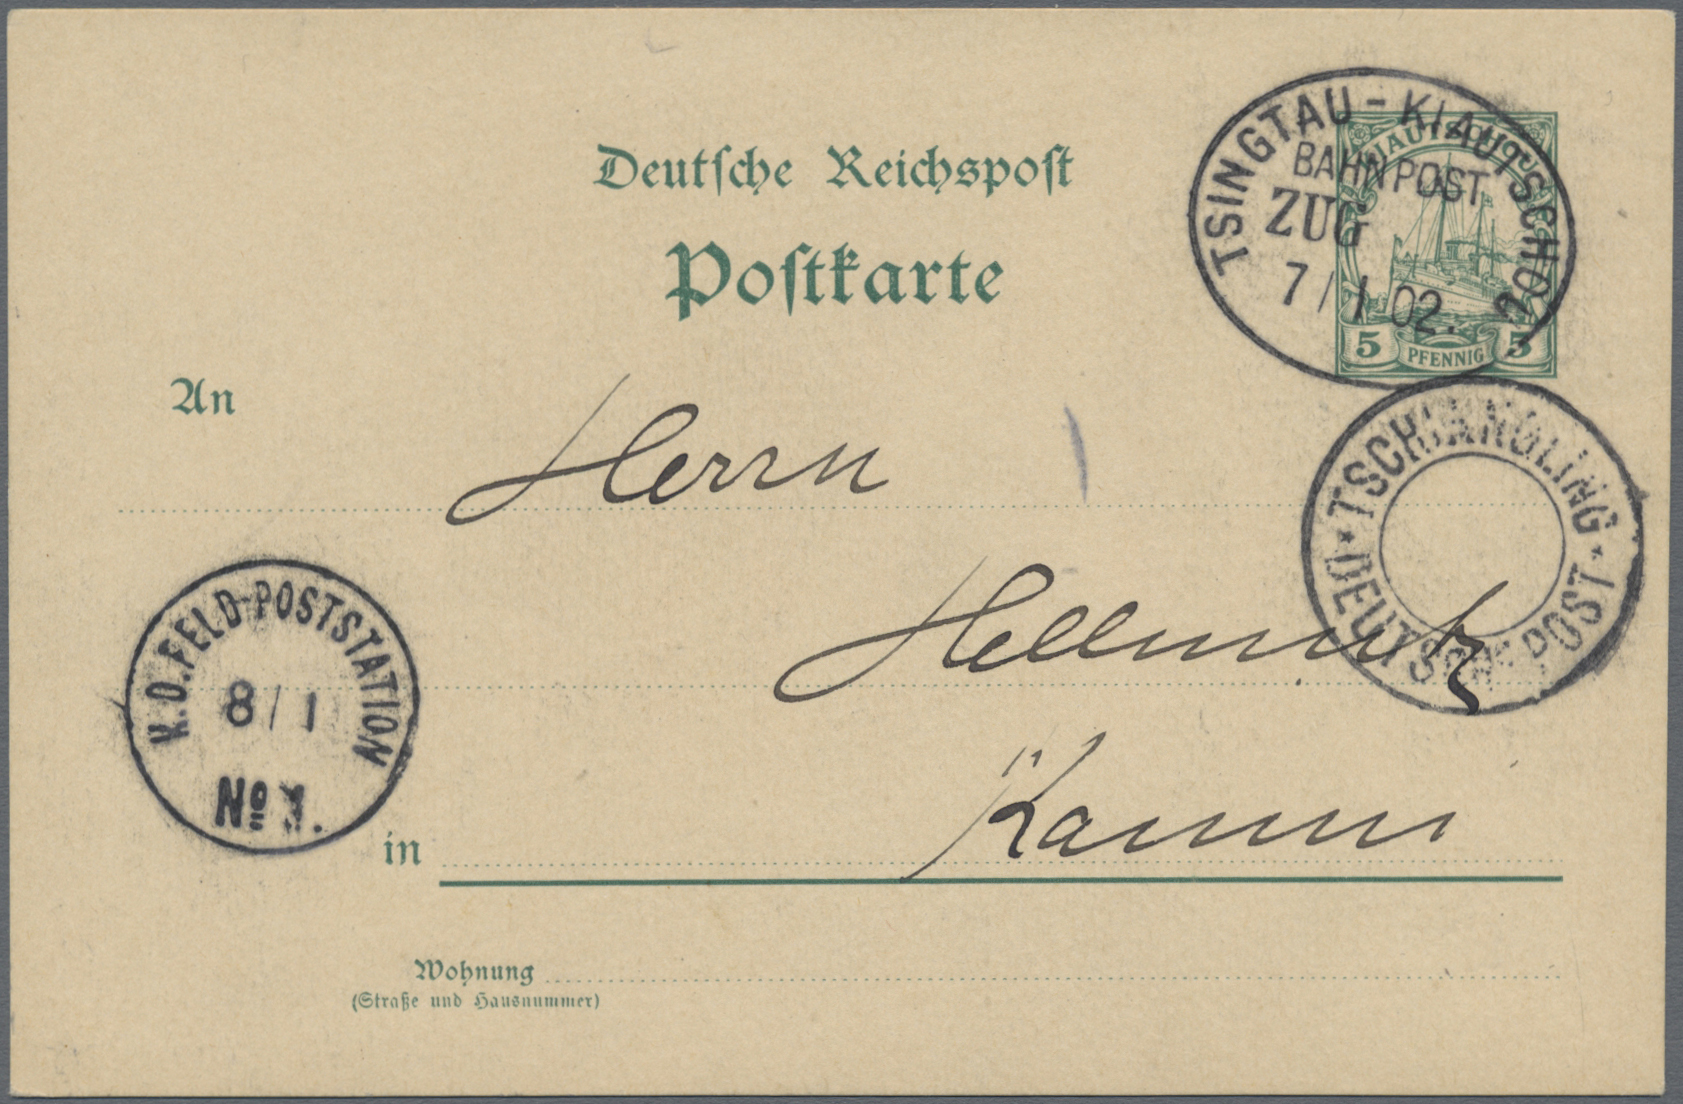 Deutsche Reichspost
Postkarte
TSINGTAU - KIAUTSCHOU
BAHNPOST
ZUG
7/1 02.
KIAUTSCHOU
5 PFENNIG 5
DEUTSCHE POST
An
Herrn
K.D.FELD-POSTSTATION
8/1
No 1.
in
Wohnung
(Straße und Hausnummer)